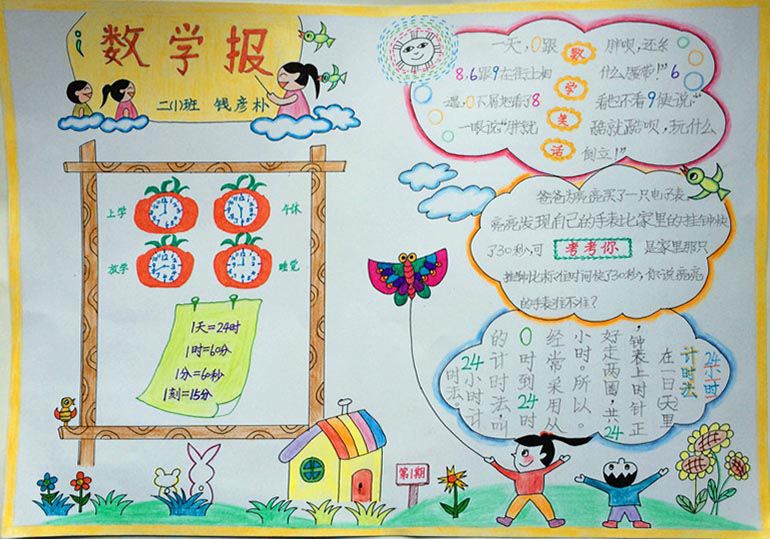 数学报
二(1)班 钱彦朴
上学
午休
放学
睡觉
1天=24时
1时=60分
1分=60秒
1刻=15分
数学笑话
一天,0跟
8,6跟9在街上相
遇,0不屑地看了8
一眼说"胖就
胖呗,还系
什么腰带!"6
看也不看9便说:"
酷就酷呗,玩什么
倒立!"
爸爸为亮亮买了一只电子表,
亮亮发现自己的手表比家里的挂钟快
了30秒,可 考考你 是家里那只
挂钟比标准时间快了30秒,你说亮亮
的手表准不准?
24小时
计时法
在一日(天)里
,钟表上时针正
好走两圈,共24
小时。所以,
经常采用从
0时到24时
的计时法,叫
24小时计
时法。
第1期